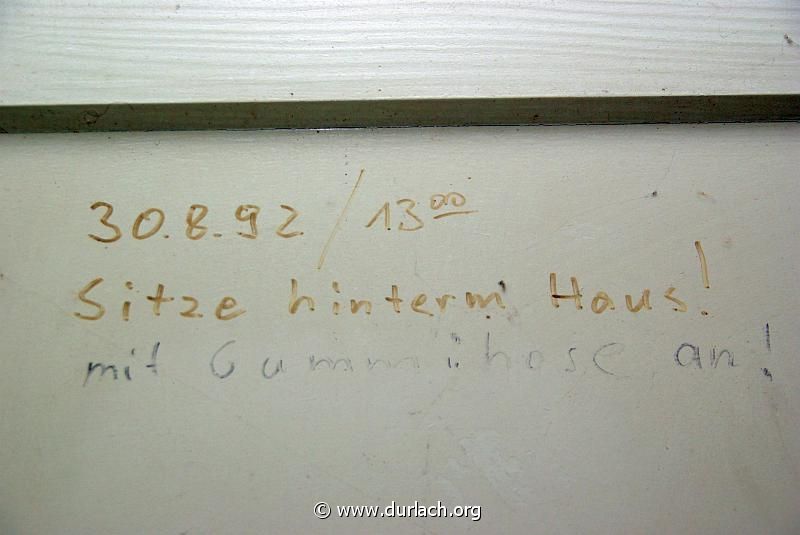 30.8.92 / 13⁰⁰
Sitze hinterm Haus!
mit Gummihose an!
© www.durlach.org